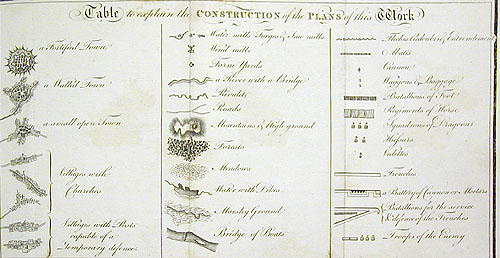 Table to explain the CONSTRUCTION of the PLANS of this Work
a Fortified Town
a Walled Town
a small open Town
Villages with
Churches
Villages with Posts
capable of a
Temporary defence
Water mills Forges & Saw mills
Wind mills
Farm Yards
a River with a Bridge
Rivulets
Roads
Mountains & High ground
Forests
Meadows
Water with Dikes
Marshy Ground
Bridge of Boats
& Entrenchment
Abatis
Cannon
Waggons & Baggage
Batallions of Foot
Regiments of Horse
Squadrons of Dragoons
Hussars
Vedettes
Trenches
a Battery of Cannon or Mortars
Batallions for the service
& defence of the Trenches
Troops of the Enemy